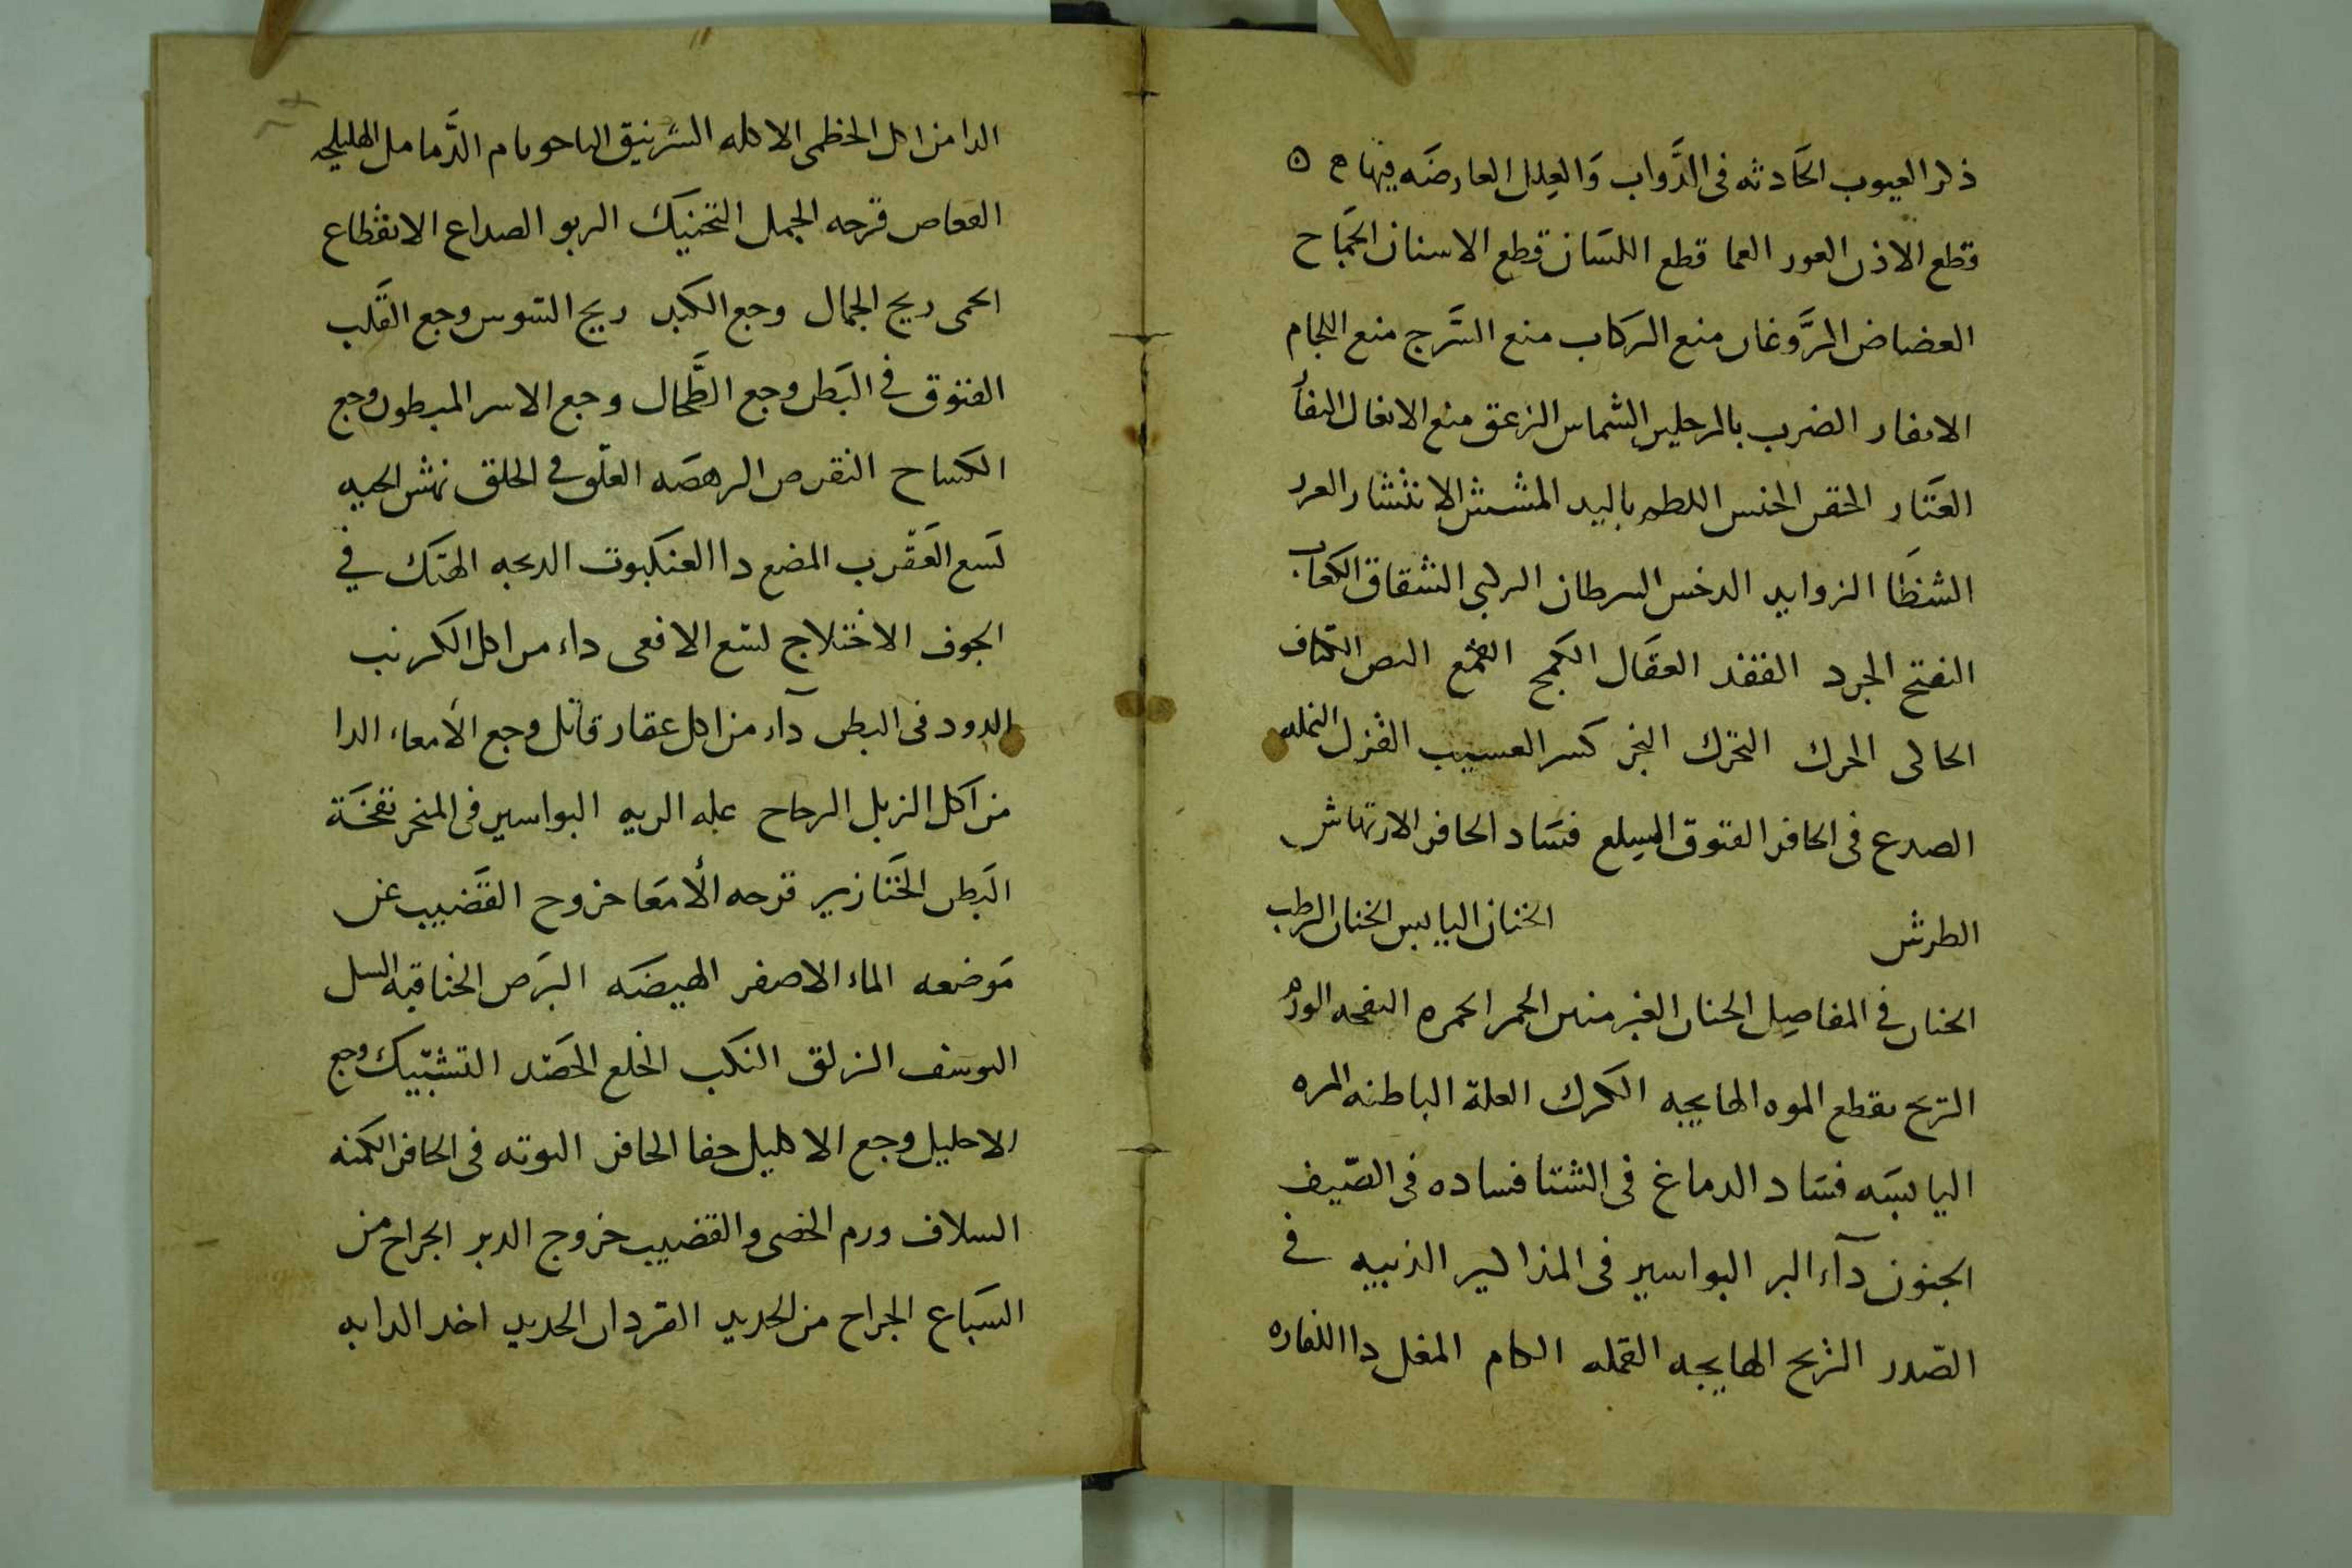 ذكر العيوب الحَادثه فى الدَّواب وَالعِلل العارضَه فيها
قطع الاذن العور العما قطع اللسَان قطع الاسنان الجمَاح
العضاض الرَّوغان منع الركاب منع السَّرج منع اللجام
الضرب بالرجلين الشماس الزعق منع الانعال
العثَار الخنس اللطم باليد المشش الانتشار
الشظَا الزوايد الدخس السرطان الشقاق الكعاب
النفتح الجرد الففد العقَال الكمح القمع
كسر العسيب القزل النمله
الصدع فى الحافر الفتوق السلع فسَاد الحافر الارتهاش
الطرش الخنان اليابس الخنان الرطب
الخنان في المفاصِل الخنان الحمر الحمره النفحه
الريح الهايجه الكرك العلة الباطنه المره
اليابسَه فسَاد الدماغ فى الشتا فساده فى الصّيف
الجنون دآء البواسير فى المذاكير الذيبيه في
الصّدر الريح الهايجه القمله المغل دا
الدا من اكل الخطمى الاكله الدَّمامل الهليلجه
قرحه الجمل التحنيك الربو الصداع الانقطاع
الحمى ريح الجمال وجع الكبد ريح السوس وجع القَلب
الفتوق في البَطن وجع الطَّحال وجع الاسر المبطون وجع
الكساح النقرص الرهصَه العلَق في الحلق نهش الحيه
لسَع العَقرب المضع دا العنكبوت الهتَك في
الجوف الاختلاج لسَع الافعى داء من اكل الكرنب
الدود فى البطن دآء من اكل عقار قاتل وجع الأمعاء الدا
من اكل الزبل علة الريه البواسير فى المنخر نفخَة
البَطن الخنَازير قرحه الأمعَا خروح القَضيب عن
مَوضعه الماء الاصفر الهيضَه البَرَص الخناقيه السل
الزلق النكب الخلع الحصَد التشبّيك وجع
الاحليل وجع الاكليل حفا الحافر فى الحافر الكمنه
السلاف ورم الخصى والقضيب خروج الدبر الجراح من
السبَاع الجراح من الحديد القردان الحديد اخذ الدابه